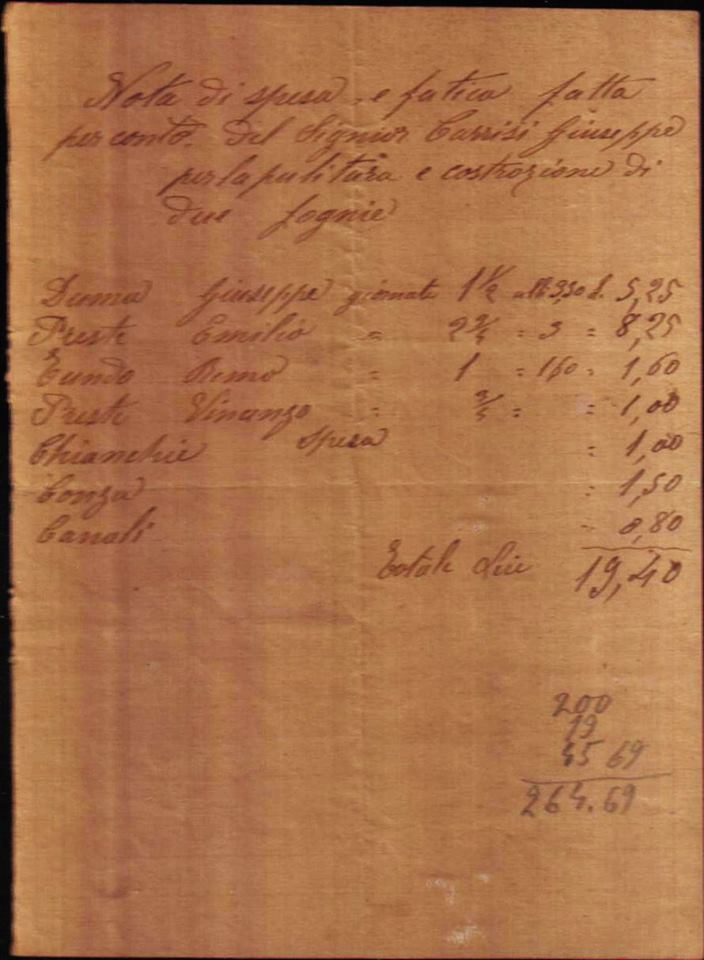 Nota di spesa e fatica fatta
per conto. del Signior Carrisi Giuseppe
per la pulitura e costrozione di
due fognie
Duma Giuseppe giornate 1 1/2 3,50 L. 5,25
Preste Emilio = 2 3/4 = 3 = 8,25
Tundo Remo = 1 = 1,60 = 1,60
Preste Vinanzo = = = 1,00
Chianchie spesa = 1,00
Conza = 1,50
Canali = 0,80
Totale Lire 19,40
200
19
45 69
264.69